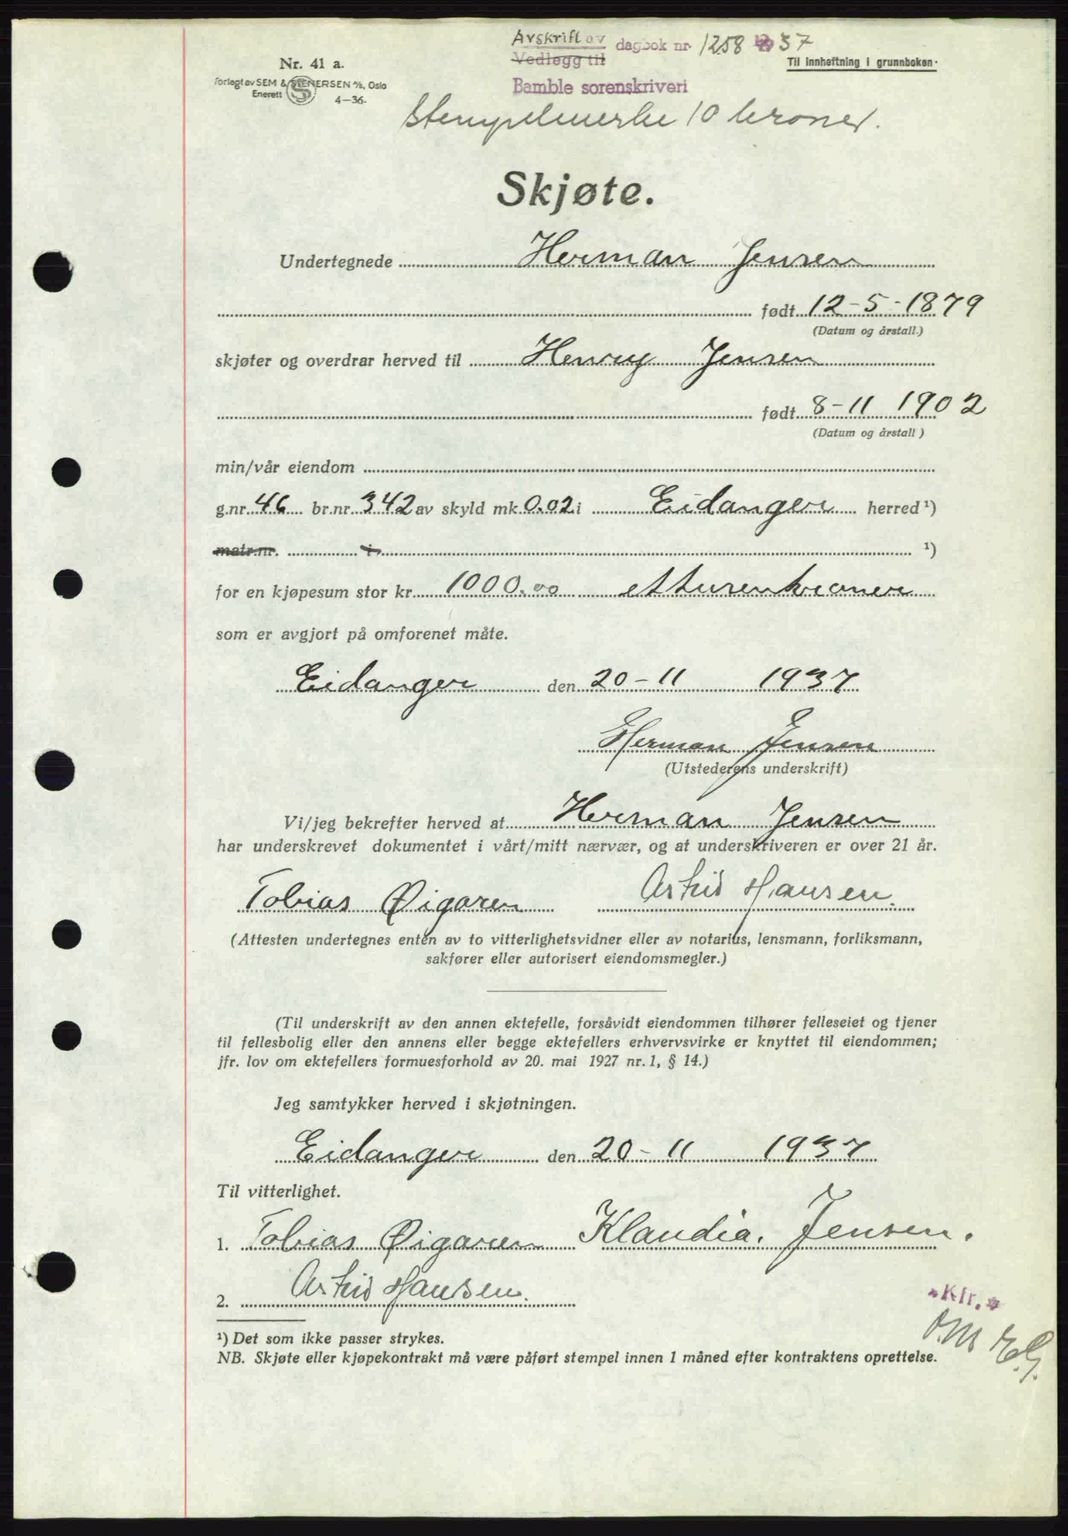 Avskrift av
Vedlegg til dagbok nr 1258 1937
Bamble sorenskriveri
Til innheftning i grunnboken.
Nr. 41 a.
Forlagt av SEM & STENERSEN A/S, Oslo
Enerett 4-36.
Stempelmerke 10 kroner.
Skjøte.
Undertegnede Herman Jensen
født 12-5-1879
(Datum og årstall.)
skjøter og overdrar herved til Henry Jensen
født 8-11 1902
(Datum og årstall)
min/vår eiendom
g.nr. 46 br.nr. 342 av skyld mk 0.02 i Eidanger herred ¹)
matr.nr. i ¹)
for en kjøpesum stor kr. 1000.00 ettusenkroner
som er avgjort på omforenet måte.
Eidanger den 20-11 1937
Herman Jensen
(Utstederens underskrift)
Vi/jeg bekrefter herved at Herman Jensen
har underskrevet dokumentet i vårt/mitt nærvær, og at underskriveren er over 21 år.
Tobias Øigaren Astrid Hansen.
(Attesten undertegnes enten av to vitterlighetsvidner eller av notarius, lensmann, forliksmann,
sakfører eller autorisert eiendomsmegler.)
(Til underskrift av den annen ektefelle, forsåvidt eiendommen tilhører felleseiet og tjener
til fellesbolig eller den annens eller begge ektefellers erhvervsvirke er knyttet til eiendommen;
jfr. lov om ektefellers formuesforhold av 20. mai 1927 nr. 1, § 14.)
Jeg samtykker herved i skjøtningen.
Eidanger den 20-11 1937
Til vitterlighet.
1. Tobias Øigaren Klaudia. Jensen.
2. Astrid Hansen.
Kfr.
¹) Det som ikke passer strykes.
NB. Skjøte eller kjøpekontrakt må være påført stempel innen 1 måned efter kontraktens oprettelse.